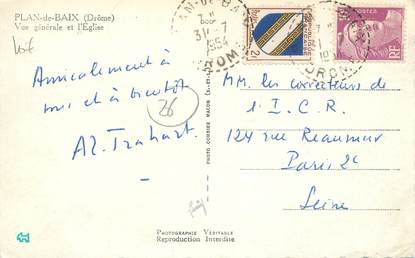 PLAN-de-BAIX (Drôme)
Vue générale et l'Église
Amicalement à
tous et à bientôt
Al. Trahart.
26
PLAN-DE-BAIX
31-7
1954
DROME
RÉPUBLIQUE FRANÇAISE
2F
MM. les correcteurs de
l'I.C.R.
124 rue Reaumur
Paris 2e
Seine
PHOTO COMBIER MACON
PHOTOGRAPHIE VÉRITABLE
Reproduction Interdite